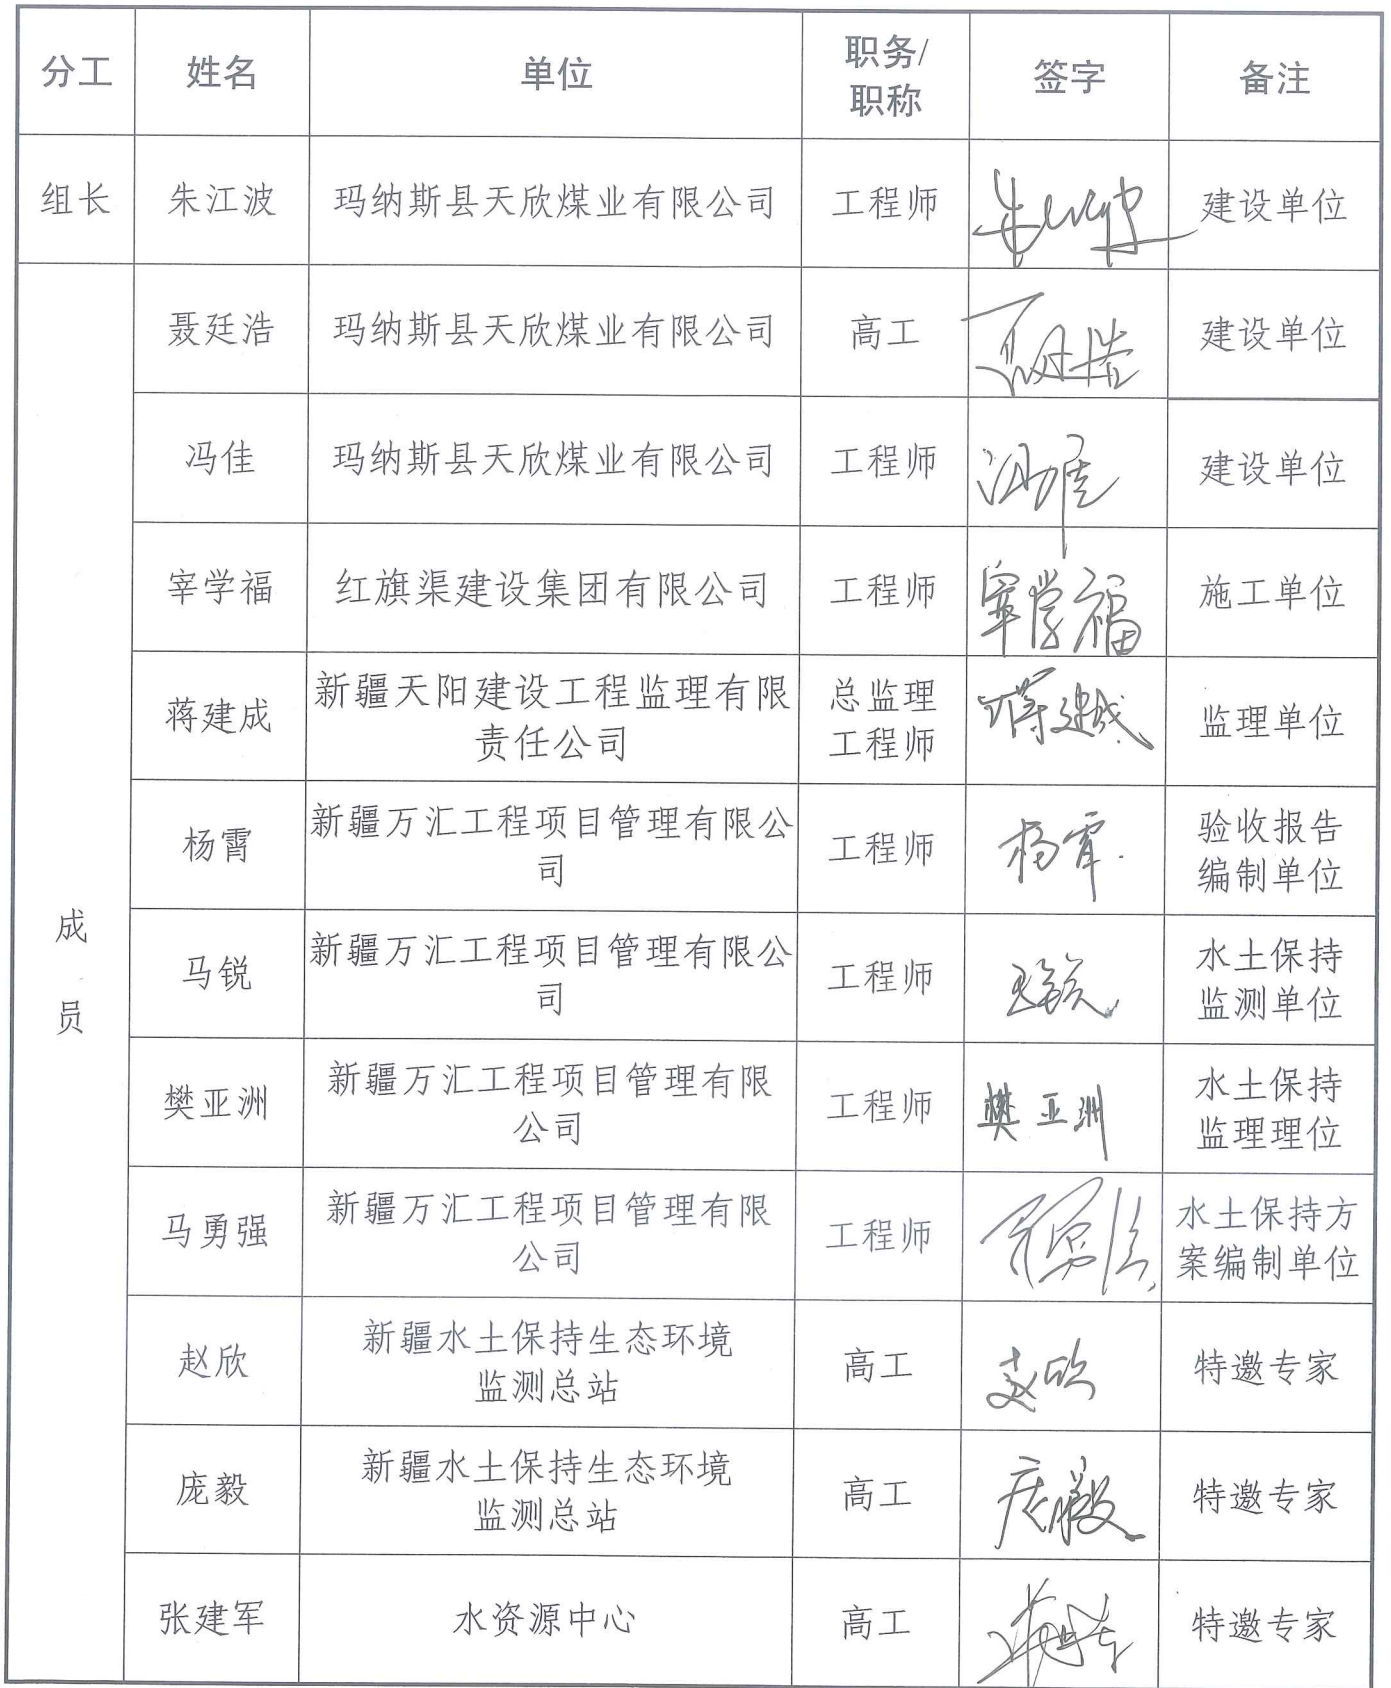 分工 姓名 单位 职务/ 签字 备注
职称
组长 朱江波 玛纳斯县天欣煤业有限公司 工程师 建设单位
成
员
聂廷浩 玛纳斯县天欣煤业有限公司 高工 建设单位
冯佳 玛纳斯县天欣煤业有限公司 工程师 冯佳 建设单位
宰学福 红旗渠建设集团有限公司 工程师 宰学福 施工单位
蒋建成 新疆天阳建设工程监理有限 总监理 蒋建成 监理单位
责任公司 工程师
杨霄 新疆万汇工程项目管理有限公 工程师 杨霄 验收报告
司 编制单位
马锐 新疆万汇工程项目管理有限公 工程师 马锐 水土保持
司 监测单位
樊亚洲 新疆万汇工程项目管理有限 工程师 樊亚洲 水土保持
公司 监理理位
马勇强 新疆万汇工程项目管理有限 工程师 水土保持方
公司 案编制单位
赵欣 新疆水土保持生态环境 高工 赵欣 特邀专家
监测总站
庞毅 新疆水土保持生态环境 高工 庞毅 特邀专家
监测总站
张建军 水资源中心 高工 特邀专家